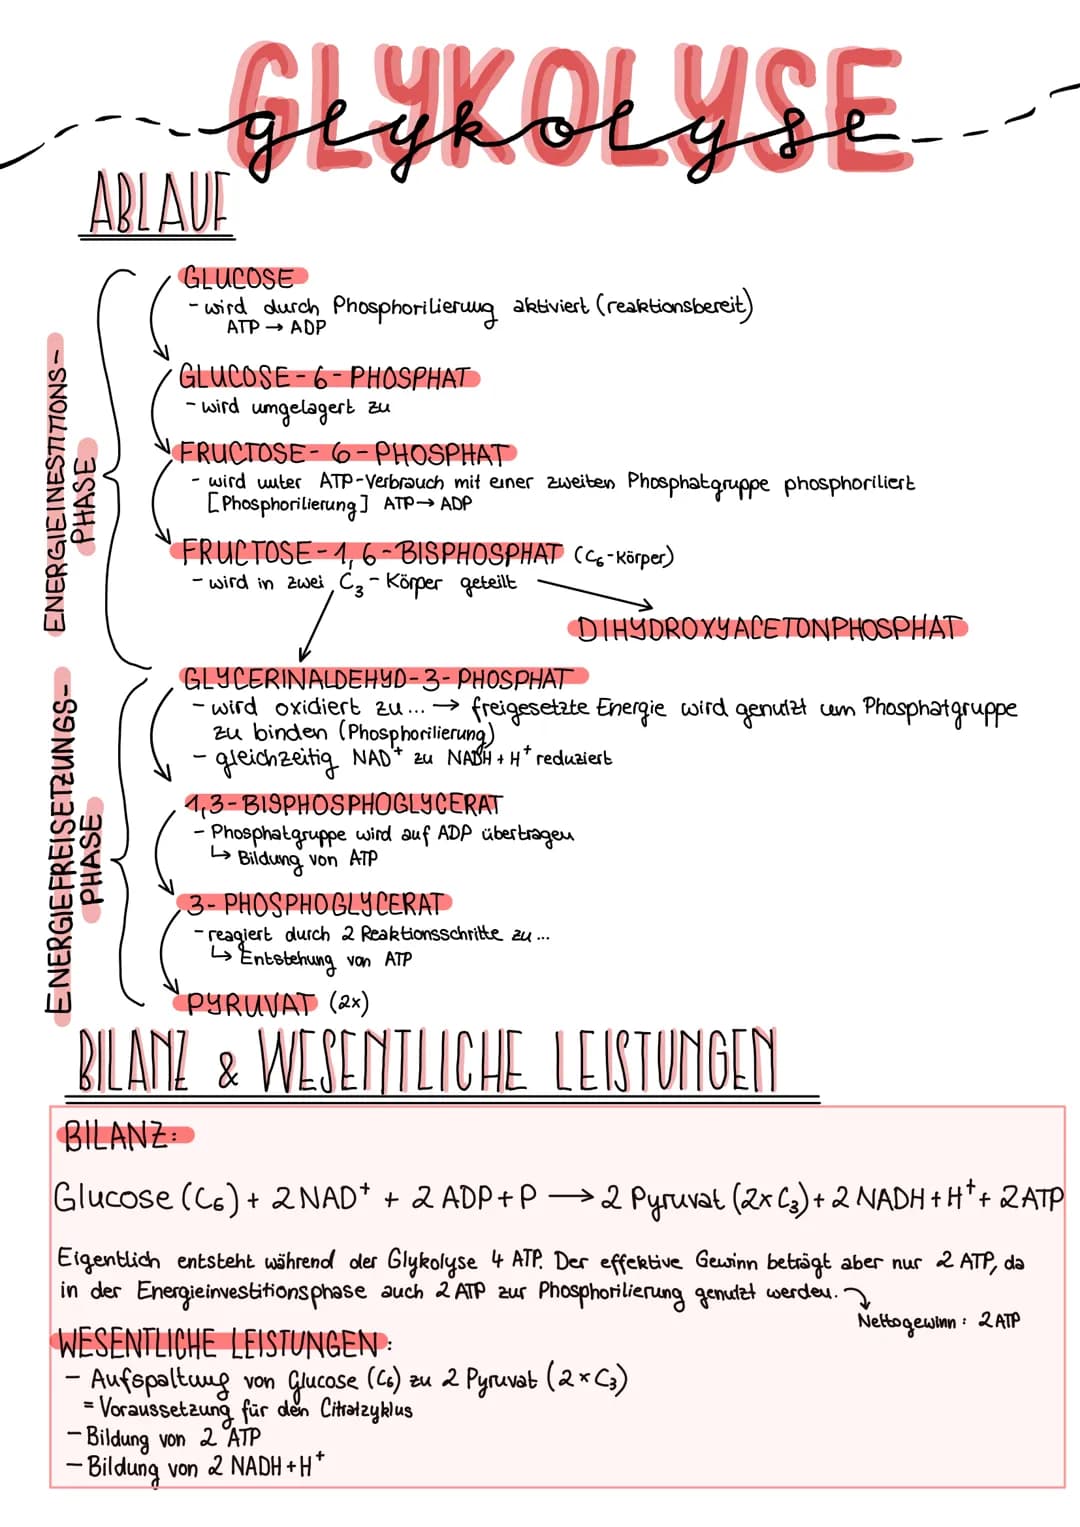 GLYKOLYSE
glykolyse
ABLAUF
ENERGIEINESTITIONS-
PHASE
GLUCOSE
- wird durch Phosphorilierung aktiviert (reaktionsbereit)
ATP → ADP
GLUCOSE-6-PHOSPHAT
- wird umgelagert zu
FRUCTOSE-6-PHOSPHAT
- wird unter ATP-Verbrauch mit einer zweiten Phosphatgruppe phosphoriliert
[Phosphorilierung] ATP → ADP
FRUCTOSE-1,6-BISPHOSPHAT (C₆-Körper)
- wird in zwei C₃-Körper geteilt
DIHYDROXYACETONPHOSPHAT
ENERGIEFREISETZUNGS-
PHASE
GLYCERINALDEHYD-3-PHOSPHAT
- wird oxidiert zu... → freigesetzte Energie wird genutzt um Phosphatgruppe
zu binden (Phosphorilierung)
- gleichzeitig NAD⁺ zu NADH + H⁺ reduziert
1,3-BISPHOSPHOGLYCERAT
- Phosphatgruppe wird auf ADP übertragen
↳ Bildung von ATP
3-PHOSPHOGLYCERAT
- reagiert durch 2 Reaktionsschritte zu...
↳ Entstehung von ATP
PYRUVAT (2x)
BILANZ & WESENTLICHE LEISTUNGEN
BILANZ:
Glucose (C₆) + 2 NAD⁺ + 2 ADP + P → 2 Pyruvat (2x C₃) + 2 NADH + H⁺ + 2 ATP
Eigentlich entsteht während der Glykolyse 4 ATP. Der effektive Gewinn beträgt aber nur 2 ATP, da
in der Energieinvestitionsphase auch 2 ATP zur Phosphorilierung genutzt werden.
Nettogewinn: 2 ATP
WESENTLICHE LEISTUNGEN:
- Aufspaltung von Glucose (C₆) zu 2 Pyruvat (2 x C₃)
= Voraussetzung für den Citratzyklus
- Bildung von 2 ATP
- Bildung von 2 NADH + H⁺